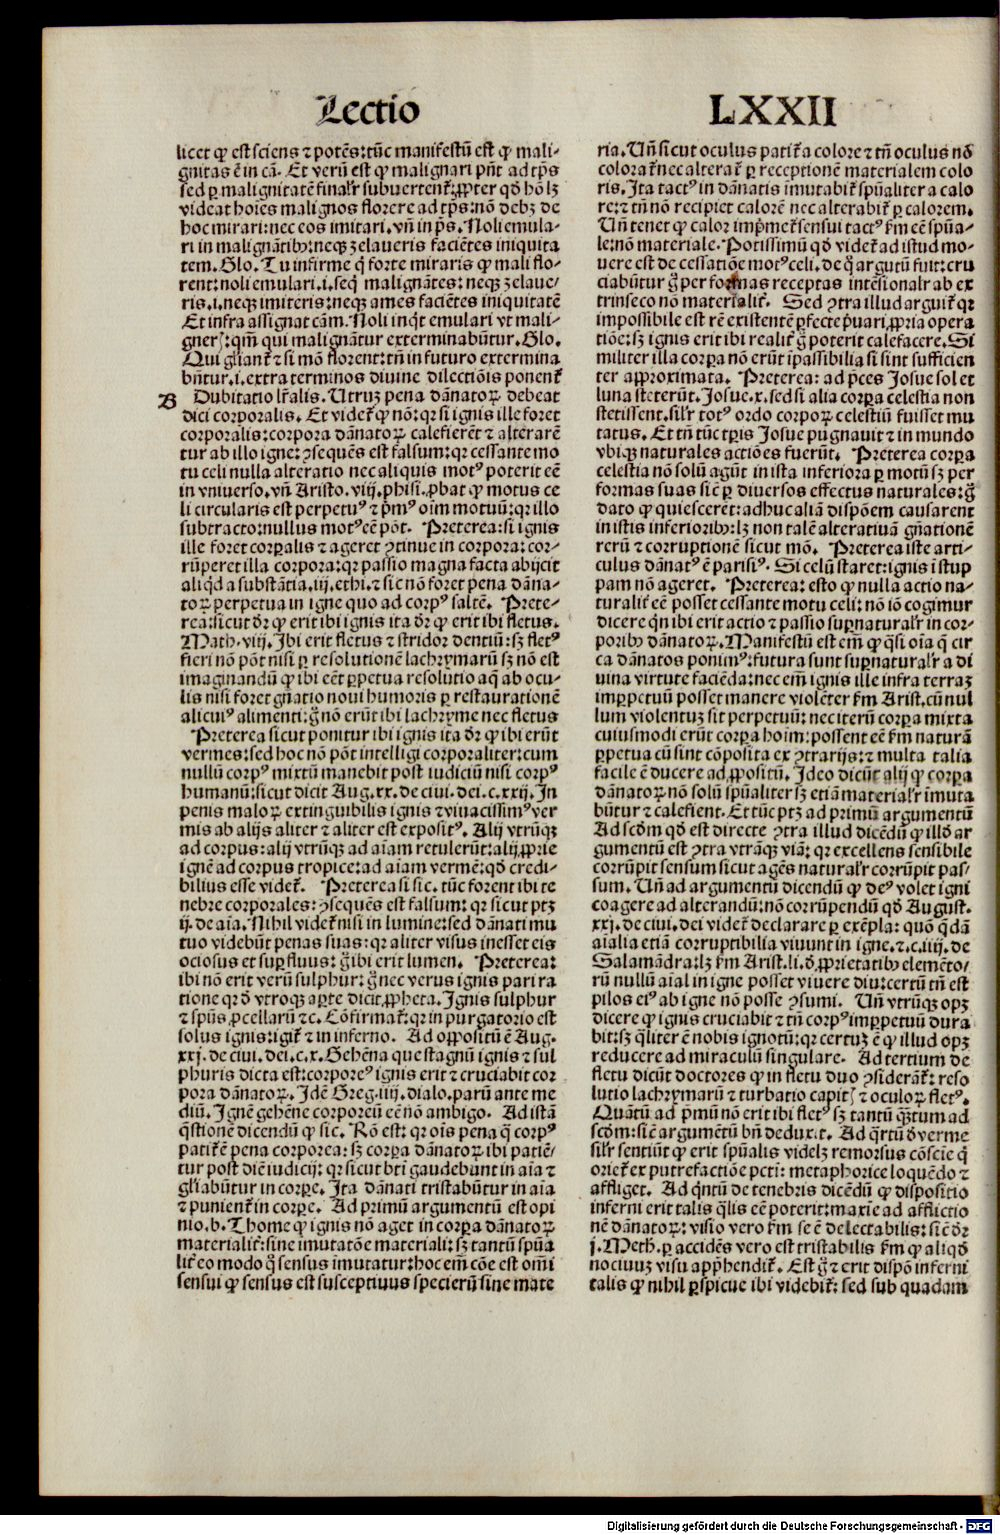 Lectio
LXXII
licet ꝙ est sciens ⁊ potēs: tūc manifestū est ꝙ mali-
gnitas ē in cā. Et verū est ꝙ malignari pn̄t ad tp̄s
sed ꝑ malignitatē finalr̄ subvertent̄: ꝓpter qd̄ hō lꝫ
videat hoīes malignos florere ad tp̄s: nō debꝫ de
hoc mirari: nec eos imitari. vn̄ in ps̄. Noli emula-
ri in malignātibꝰ: neqꝫ zelaueris faciētes iniquita
tem. Glo. Tu infirme q̄ forte miraris ꝙ mali flo-
rent: noli emulari. i. seq̄ malignātes: neqꝫ zelaue/
ris. i. neqꝫ imiteris: neqꝫ ames faciētes iniquitatē
Et infra assignat cām. Noli inq̄t emulari vt mali-
gnerꝭ: qm̄ qui malignātur exterminabūtur. Glo.
Qui gl̄iant̄ ⁊ si mō florent: tn̄ in futuro extermina
būtur. i. extra terminos diuine dilectiōis ponent̄
B
Dubitatio lr̄alis. Utruꝫ pena dānatoꝝ debeat
dici corporalis. Et videt̄ ꝙ nō: qr si ignis ille foret
corporalis: corpora dānatoꝝ calefierēt ⁊ alterarē
tur ab illo igne: ꝯsequēs est falsum: qr cessante mo
tu celi nulla alteratio nec aliquis motꝰ poterit eē
in vniuerso. vn̄ Aristo. viij. phisi. ꝓbat ꝙ motus ce
li circularis est perpetuꝰ ⁊ p̄mꝰ oīm motuū: qr illo
subtracto: nullus motꝰ eē pōt. Preterea: si ignis
ille foret corꝑalis ⁊ ageret ꝯtinue in corpora: cor-
rūperet illa corpora: qr passio magna facta abijcit
aliqd̄ a substātia. iij. ethi. ⁊ sic nō foret pena dāna-
toꝝ perpetua in igne quo ad corpꝰ saltē. Prete-
rea: sicut dr̄ ꝙ erit ibi ignis ita dr̄ ꝙ erit ibi fletus.
Math. viij. Ibi erit fletus ⁊ stridor dentiū: sꝫ fletꝰ
fieri nō pōt nisi ꝑ resolutionē lachrymarū sꝫ nō est
imaginandū ꝙ ibi eēt ꝑpetua resolutio aq̄ ab ocu-
lis nisi foret gn̄atio noui humoris ꝑ restaurationē
alicuiꝰ alimenti: g̊ nō erūt ibi lachryme nec fletus
Preterea sicut ponitur ibi ignis ita dr̄ ꝙ ibi erūt
vermes: sed hoc nō pōt intelligi corporaliter: cum
nullū corpꝰ mixtū manebit post iudiciū nisi corpꝰ
humanū: sicut dicit Aug. xx. de ciui. dei. c. xxij. In
penis maloꝝ extinguibilis ignis ⁊ viuacissimꝰ ver
mis ab alijs aliter ⁊ aliter est expositꝰ. Alij vtrūqꝫ
ad corpus: alij vtrūqꝫ ad aīam retulerūt: alij ꝓprie
ignē ad corpus tropice: ad aīam vermē: qd̄ credi-
bilius esse videt̄. Preterea si sic. tūc forent ibi te
nebre corporales: ꝯsequēs est falsum: qr sicut ptꝫ
ij. de aīa. Nihil videt̄ nisi in lumine: sed dānati mu
tuo videbūt penas suas: qr aliter visus inesset eis
ociosus et suꝑfluus: g̊ ibi erit lumen. Preterea:
ibi nō erit verū sulphur: g̊ nec verus ignis pari ra
tione qr d̄ vtroqꝫ aperte dicit ꝓpheta. Ignis sulphur
⁊ spūs ꝓcellarū ⁊c. Cōfirmat̄: qr in purgatorio est
solus ignis: igit̄ ⁊ in inferno. Ad oppositū ē Aug.
xxj. de ciui. dei. c. x. Gehēna que stagnū ignis ⁊ sul
phuris dicta est: corporeꝰ ignis erit ⁊ cruciabit cor
pora dānatoꝝ. Idē Greg. iiij. dialo. parū ante me
diū. Ignē gehēne corporeū eē nō ambigo. Ad istā
q̄stionē dicendū ꝙ sic. Rō est: qr oīs pena q̄ corpꝰ
patit̄ ē pena corporea: sꝫ corꝑa dānatoꝝ ibi patiē/
tur post diē iudicij: qr sicut bt̄i gaudebunt in aīa ⁊
gl̄iabūtur in corꝑe. Ita dānati tristabūtur in aīa
⁊ punient̄ in corꝑe. Ad primū argumentū est opi
nio. b. Thome ꝙ ignis nō aget in corꝑa dānatoꝝ
materialit̄: sine imutatōe materiali: sꝫ tantū spūa
lit̄ eo modo q̊ sensus imutatur: hoc em̄ cōe est omī
sensui ꝙ sensus est susceptiuus specierū sine mate
ria. Un̄ sicut oculus patit̄ a colore ⁊ tn̄ oculus nō
colorat̄ nec alterat̄ ꝑ receptionē materialem colo
ris. Ita tactꝰ in dānatis imutabit̄ spūaliter a calo
re: ⁊ tn̄ nō recipiet calorē nec alterabit̄ ꝑ calorem.
Un̄ tenet ꝙ calor imp̄met̄ sensui tactꝰ fm̄ eē spūa-
le: nō materiale. Potissimū qd̄ videt̄ ad istud mo-
uere est de cessatiōe motꝰ celi. de q̊ argutū fuit: cru
ciabūtur g̊ per formas receptas intēsionalr̄ ab ex
trinseco nō materialit̄. Sed ꝯtra illud arguit̄ qr
impossibile est rē existentē ꝑfecte p̄uari ꝓpria opera
tiōe: sꝫ ignis erit ibi realit̄ g̊ poterit calefacere. Si
militer illa corꝑa nō erūt ipassibilia si sint sufficien
ter approximata. Preterea: ad p̄ces Josue sol et
luna steterūt. Josue. x. sed si alia corꝑa celestia non
stetissent. silr̄ totꝰ ordo corpoꝝ celestiū fuisset mu
tatus. Et tn̄ tūc tꝑis Josue pugnauit ⁊ in mundo
vbiqꝫ naturales actiōes fuerūt. Preterea corꝑa
celestia nō solū agūt in ista inferiora ꝑ motū sꝫ per
formas suas sic̄ ꝑ diuersos effectus naturales: g̊
dato ꝙ quiescerēt: adhuc aliā dispōem causarent
in istis inferioribꝰ: lꝫ non talē alteratiuā gn̄ationē
rerū ⁊ corruptionē sicut mō. Preterea iste arti-
culus dānatꝰ ē parisiꝰ. Si celū staret: ignis i stup
pam nō ageret. Preterea: esto ꝙ nulla actio na-
turalit̄ eē posset cessante motu celi: nō iō cogimur
dicere qn̄ ibi erit actio ⁊ passio suꝑnaturalr̄ in cor-
poribꝰ dānatoꝝ. Manifestū est em̄ ꝙ q̄si oīa q̄ cir
ca dānatos ponimꝰ: futura sunt suꝑnaturalr̄ a di
uina virtute faciēda: nec em̄ ignis ille infra terraꝫ
imꝑpetuū posset manere violēter fm̄ Arist. cū nul
lum violentuꝫ sit perpetuū: nec iterū corꝑa mixta
cuiusmodi erūt corꝑa hoīm: possent eē fm̄ naturā
ꝑpetua cū sint cōposita ex ꝯtrarijs: ⁊ multa talia
facile ē ducere ad ꝓpositū. Ideo dicūt alij ꝙ corꝑa
dānatoꝝ nō solū spūaliter sꝫ etiā materialr̄ imuta
būtur ⁊ calefient. Et tūc ptꝫ ad primū argumentū
Ad scd̄m qd̄ est directe ꝯtra illud dicēdū ꝙ illd̄ ar
gumentū est ꝯtra vtrāqꝫ viā: qr excellens sensibile
corrūpit sensum sicut agēs naturalr̄ corrūpit pas/
sum. Un̄ ad argumentū dicendū ꝙ deꝰ volet igni
coagere ad alterandū: nō corrūpendū qd̄ August.
xxj. de ciui. dei videt̄ declarare ꝑ exēpla: quō q̄dā
aīalia etiā corruptibilia viuunt in igne. ⁊. c. iiij. de
Salamādra: lꝫ fm̄ Arist. li. d̄ ꝓprietatibꝰ elemēto/
rū nullū aīal in igne posset viuere diu: certū tn̄ est
pilos eiꝰ ab igne nō posse ꝯsumi. Un̄ vtrūqꝫ opꝫ
dicere ꝙ ignis cruciabit ⁊ tn̄ corpꝰ imꝑpetuū dura
bit: sꝫ q̄liter ē nobis ignotū: qr certuꝫ ē ꝙ illud opꝫ
reducere ad miraculū singulare. Ad tertium de
fletu dicūt doctores ꝙ in fletu duo ꝯsiderāt̄: reso
lutio lachrymarū ⁊ turbatio capitꝭ ⁊ oculoꝝ fletꝰ.
Quātū ad p̄mū nō erit ibi fletꝰ sꝫ tantū q̄ntum ad
scd̄m: sic̄ argumētū bn̄ deduxit. Ad q̄rtū d̄ verme
silr̄ sentiūt ꝙ erit spūalis videlꝫ remorsus cōscie q̄
oriet̄ ex putrefactiōe pcti: metaphorice loquēdo ⁊
affliget. Ad q̄ntū de tenebris dicēdū ꝙ dispositio
inferni erit talis q̄lis eē poterit: maxie ad afflictio
nē dānatoꝝ: visio vero fm̄ se ē delectabilis: sic̄ dr̄
j. Meth. ꝑ accidēs vero est tristabilis fm̄ ꝙ aliqd̄
nociuuꝫ visu app̄hendit̄. Est g̊ ⁊ erit dispō inferni
talis ꝙ nihil ꝑspicue ibi videbit̄: sed sub quadam
Digitalisierung gefördert durch die Deutsche Forschungsgemeinschaft - DFG